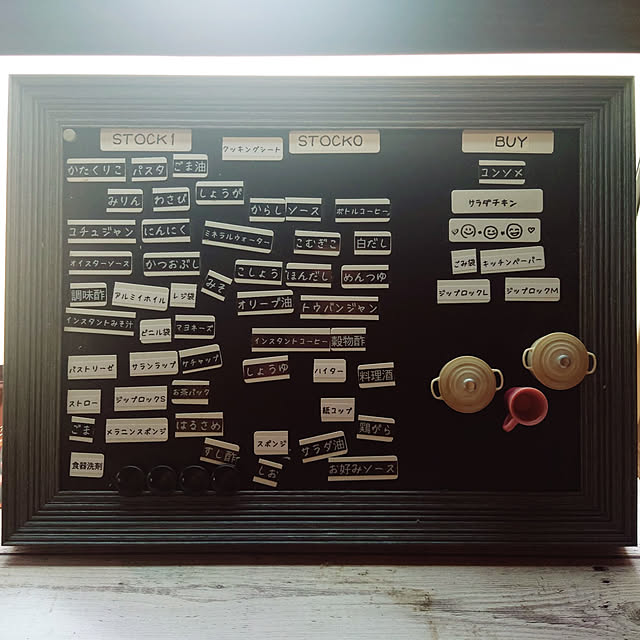 STOCK1
かたくりこ
パスタ
ごま油
みりん
わさび
しょうが
コチュジャン
にんにく
オイスターソース
かつおぶし
みそ
調味酢
アルミホイル
レジ袋
インスタントみそ汁
ビニル袋
マヨネーズ
パストリーゼ
サランラップ
ケチャップ
ストロー
ジップロックS
お茶パック
ごま
メラニンスポンジ
はるさめ
すし酢
食器洗剤
STOCK0
クッキングシート
からし
ソース
ボトルコーヒー
ミネラルウォーター
こむぎこ
白だし
こしょう
ほんだし
めんつゆ
オリーブ油
トウバンジャン
インスタントコーヒー
穀物酢
しょうゆ
ハイター
料理酒
紙コップ
鶏がら
スポンジ
サラダ油
しお
お好みソース
BUY
コンソメ
サラダチキン
ごみ袋
キッチンペーパー
ジップロックL
ジップロックM